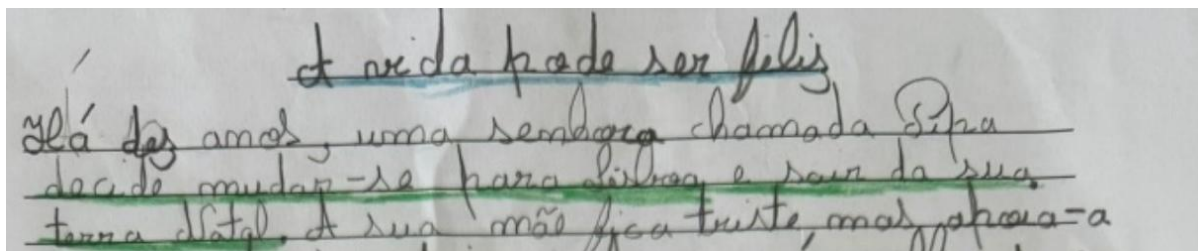 A vida pode ser filis
Há dez anos, uma senhora chamada Sipa
decide mudar-se para Lisboa e sair da sua
terra Natal. A sua mãe fica triste, mas apoia-a